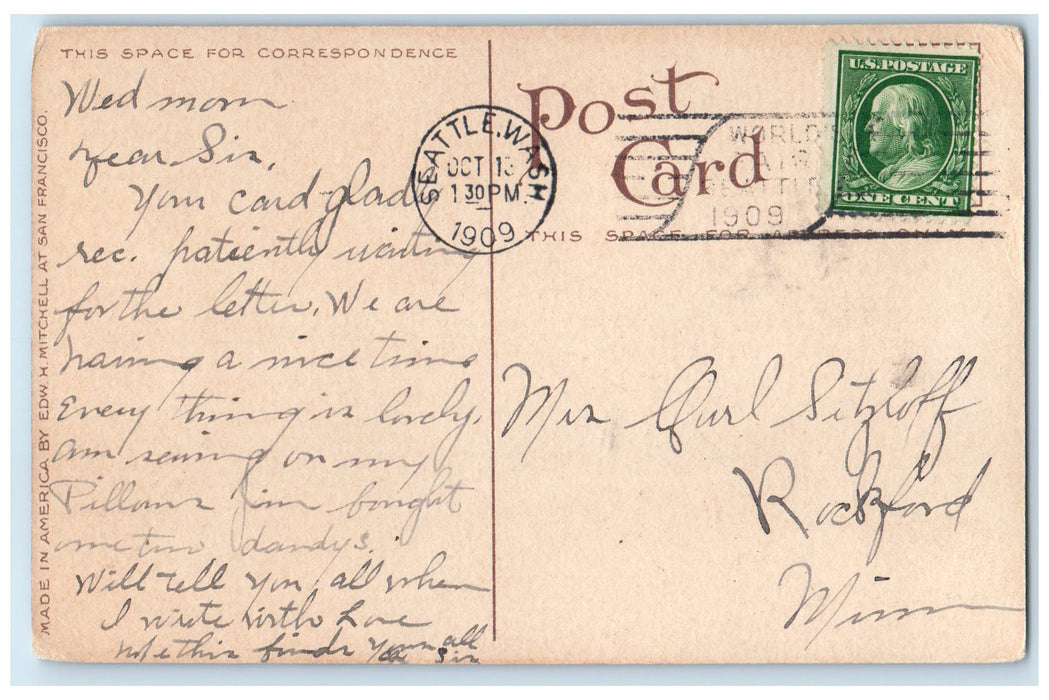 THIS SPACE FOR CORRESPONDENCE
Wed morn
Dear Sis,
Your card glad
rec. patiently waiting
for the letter. We are
having a nice time
Every thing is lovely.
am sewing on my
Pillows Jim bought
me two dandys.
Will tell you all when
I write with Love
hope this finds you all
Sis
MADE IN AMERICA BY EDW. H. MITCHELL AT SAN FRANCISCO.
Post
Card
THIS SPACE FOR ADDRESS ONLY
SEATTLE, WASH
OCT 13
1 30 PM
1909
WORLD'S
FAIR
SEATTLE
1909
U.S. POSTAGE
ONE CENT
Mrs Carl Sitzloff
Rockford
Minn